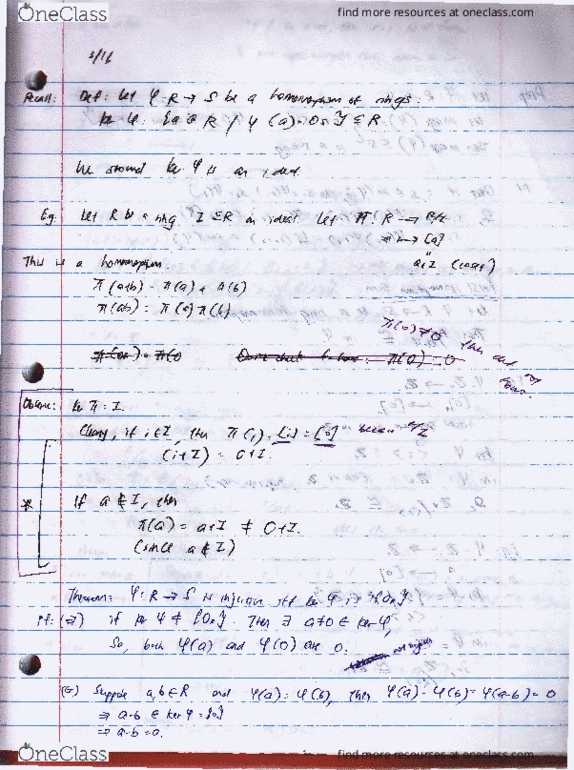 OneClass
find more resources at oneclass.com
3/16
Recall: Def: Let φ: R → S be a homomorphism of rings.
ker φ: {a ∈ R / φ(a) = 0s} ⊆ R
We showed ker φ is an ideal
Eg. Let R be a ring I ⊆ R an ideal. Let π: R → R/I
a ↦ [a]
a+I (coset)
This is a homomorphism.
π(a+b) = π(a) + π(b)
π(ab) = π(a)π(b)
π(0) ≠ 0
π(0) = 0
Observe: ker π = I.
Clearly, if i ∈ I, then π(i) = [i] = [0]
(i+I) = 0+I.
* if a ∉ I, then
π(a) = a+I ≠ 0+I.
(since a ∉ I)
Theorem: φ: R → S is injective iff ker φ is {0R}.
pf: (⇒) if ker φ ≠ {0R}. Then ∃ a≠0 ∈ ker φ,
So, both φ(a) and φ(0) are 0.
(⇐) Suppose a, b ∈ R and φ(a) = φ(b), then φ(a) - φ(b) = φ(a-b) = 0
⇒ a-b ∈ ker φ = {0}
⇒ a-b = 0.
OneClass
find more resources at oneclass.com